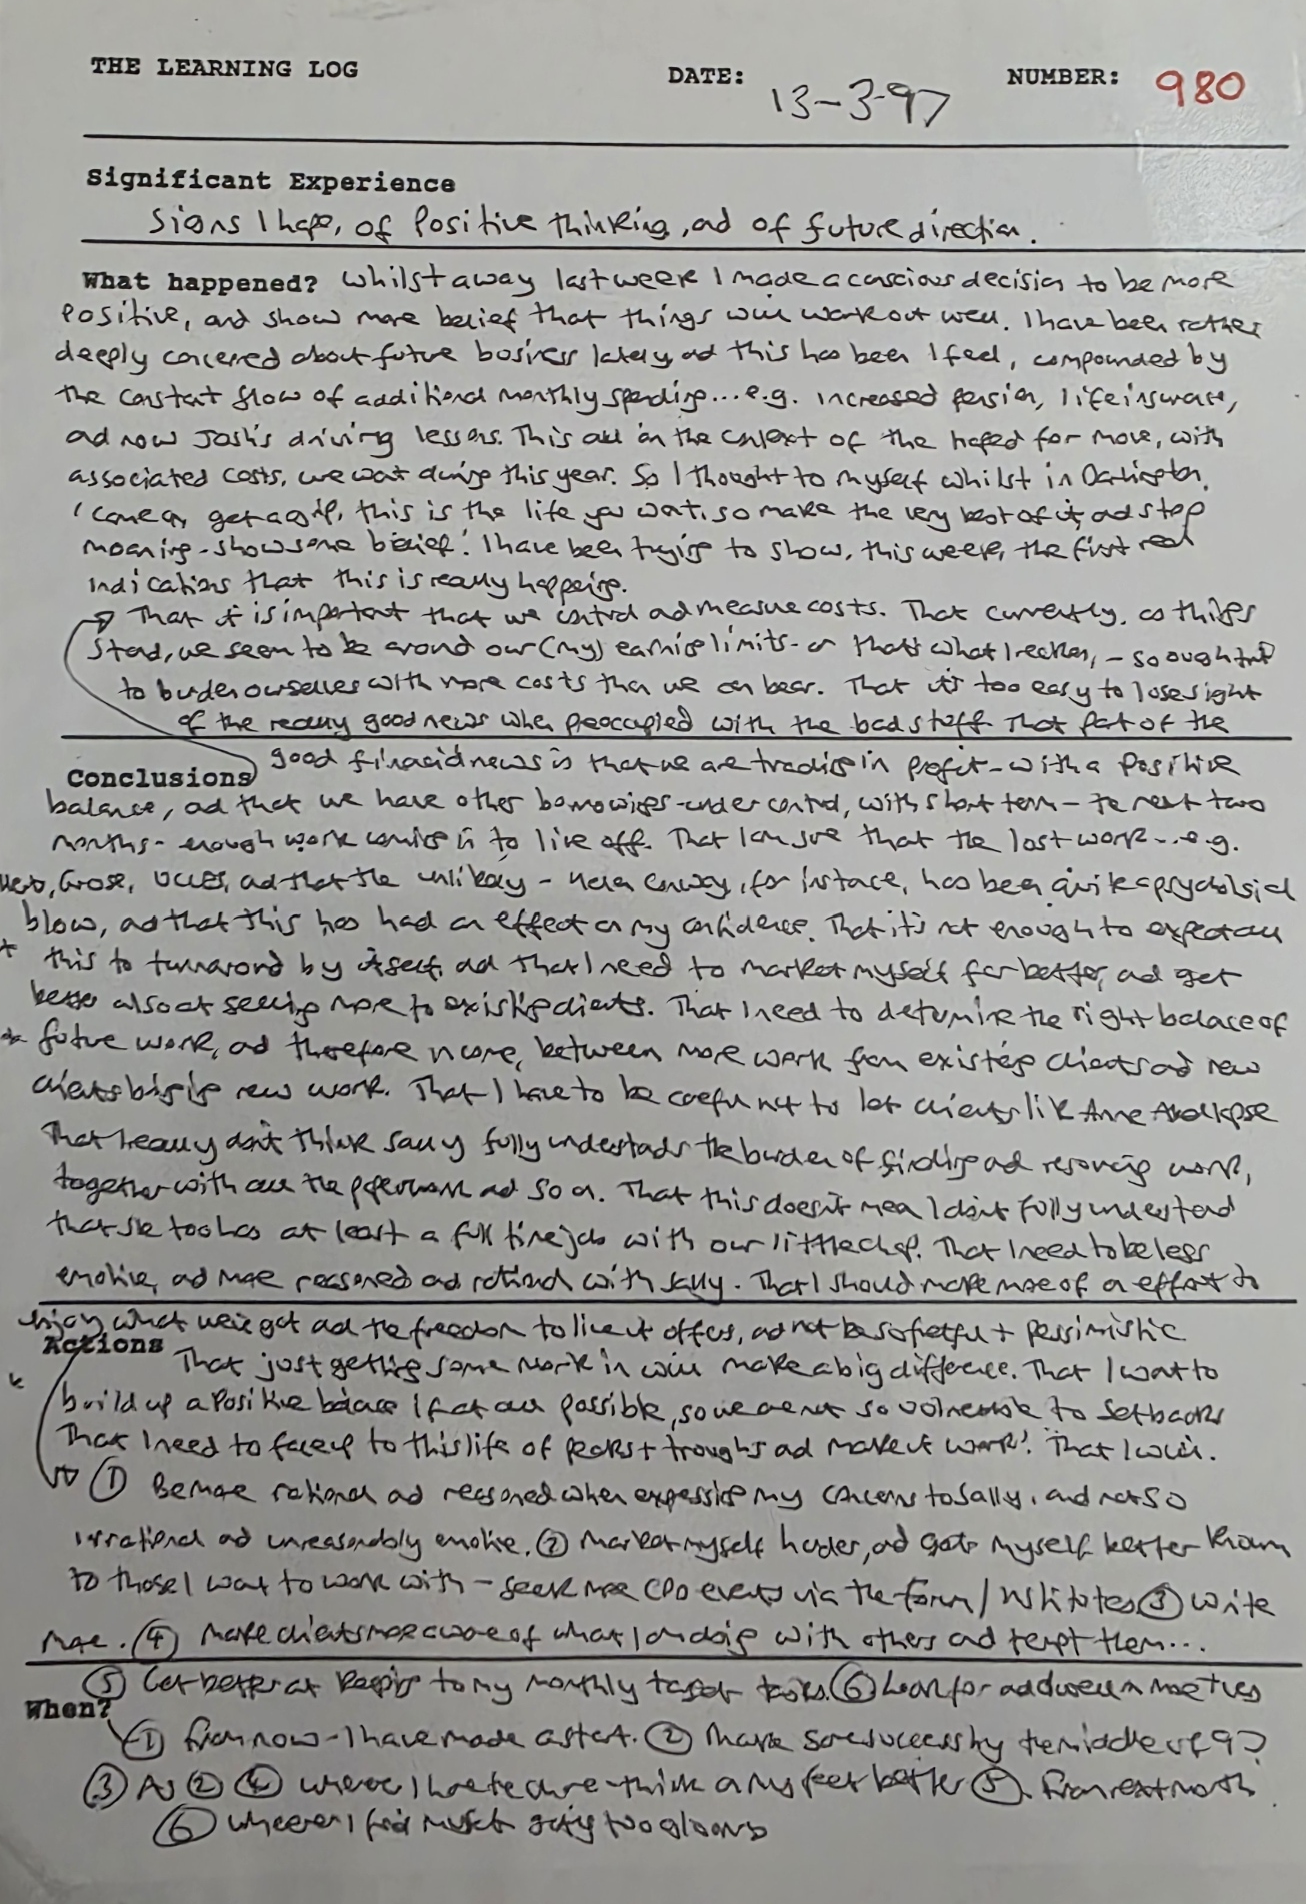 THE LEARNING LOG DATE: 13-3-97 NUMBER: 980
Significant Experience
Signs I hope, of Positive thinking, ad of future direction.
What happened? Whilst away last week I made a conscious decision to be more
Positive, and show more belief that things will work out well. I have been rather
deeply concerned about future business lately, ad this has been I feel, compounded by
the constant flow of additional monthly spending... e.g. increased pension, life insurance,
ad now Josh's driving lessons. This all in the context of the hoped for move, with
associated costs, we want during this year. So I thought to myself whilst in Darlington,
'Come on, get a grip, this is the life you want, so make the very best of it, ad stop
moaning - show some belief'. I have been trying to show, this week, the first real
indications that this is really happening.
That it is important that we control ad measure costs. That currently, as things
stand, we seem to be around our (my) earning limits - or that's what I reckon, - so ought not
to burden ourselves with more costs than we can bear. That it's too easy to lose sight
of the really good news when preoccupied with the bad stuff. That part of the
Conclusions good financial news is that we are trading in profit - with a positive
balance, ad that we have other borrowings - under control, with short term - the next two
months - enough work coming in to live off. That I am sure that the lost work - .. e.g.
ad that the unlikely - for instance, has been quite a psychological
blow, ad that this has had an effect on my confidence. That it's not enough to expect all
this to turnaround by itself, ad that I need to market myself far better, ad get
better also at selling more to existing clients. That I need to determine the right balance of
future work, ad therefore income, between more work from existing clients ad new
clients bringing new work. That I have to be careful not to let clients like Anne
That I really don't think Sally fully understands the burden of finding ad resourcing work,
together with all the paperwork ad so on. That this doesn't mean I don't fully understand
that she too has at least a full time job with our little chap. That I need to be less
emotive, ad more reasoned ad rational with Sally. That I should make more of an effort to
enjoy what we've got ad the freedom to live it offers, ad not be so fretful + pessimistic
Actions That just getting some work in will make a big difference. That I want to
build up a positive balance if at all possible, so we are not so vulnerable to setbacks
That I need to face up to this life of peaks + troughs ad make it work! That I will.
① Be more rational ad reasoned when expressing my concerns to Sally, and not so
irrational ad unreasonably emotive. ② Market myself harder, ad get myself better known
to those I want to work with - seek more CPD events via the Forum / Institutes ③ Write
more. ④ Make clients more aware of what I am doing with others ad tempt them...
⑤ Get better at keeping to my monthly target tasks. ⑥
When?
① From now - I have made a start. ② Have some success by the middle of 97
③ As ② ④ Whenever I have the chance - think on my feet better ⑤. From next month
⑥ Whenever I find myself getting too gloomy